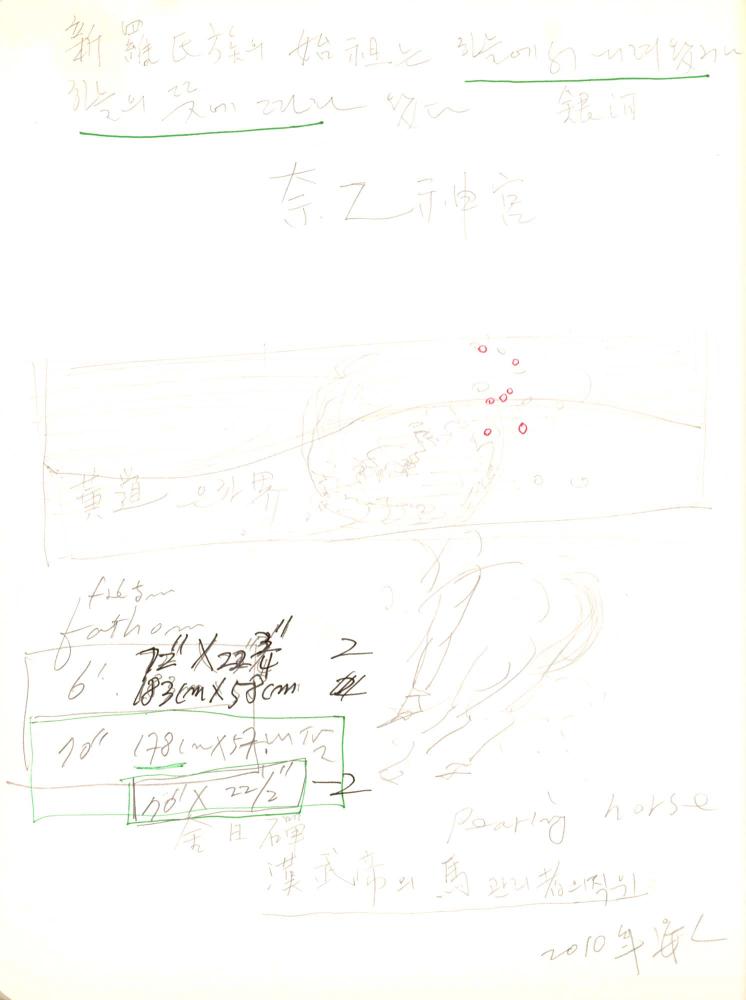 新羅民族의 始祖는 하늘에서 내려왔거나
하늘의 끝에 갔다 왔다 銀河
奈乙神宮
黃道 은하界
fathom
fathom
6' 72" X 22 3/4" 2
183cm X 58cm
70" 178cm X 57cm
70" X 22 1/2" 2
金日磾
漢武帝의 馬 관리者의 직위
rearing horse
2010年